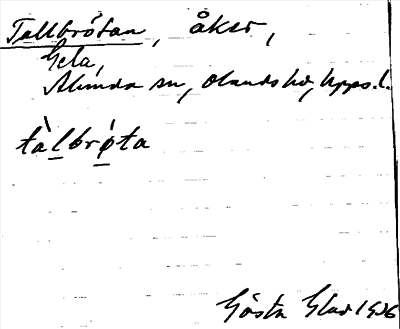 Tallbrötan, åker,
Gela,
Alunda sn, Olands hd, Upps.l.
tàlbrǿta
Gösta Glad 1936